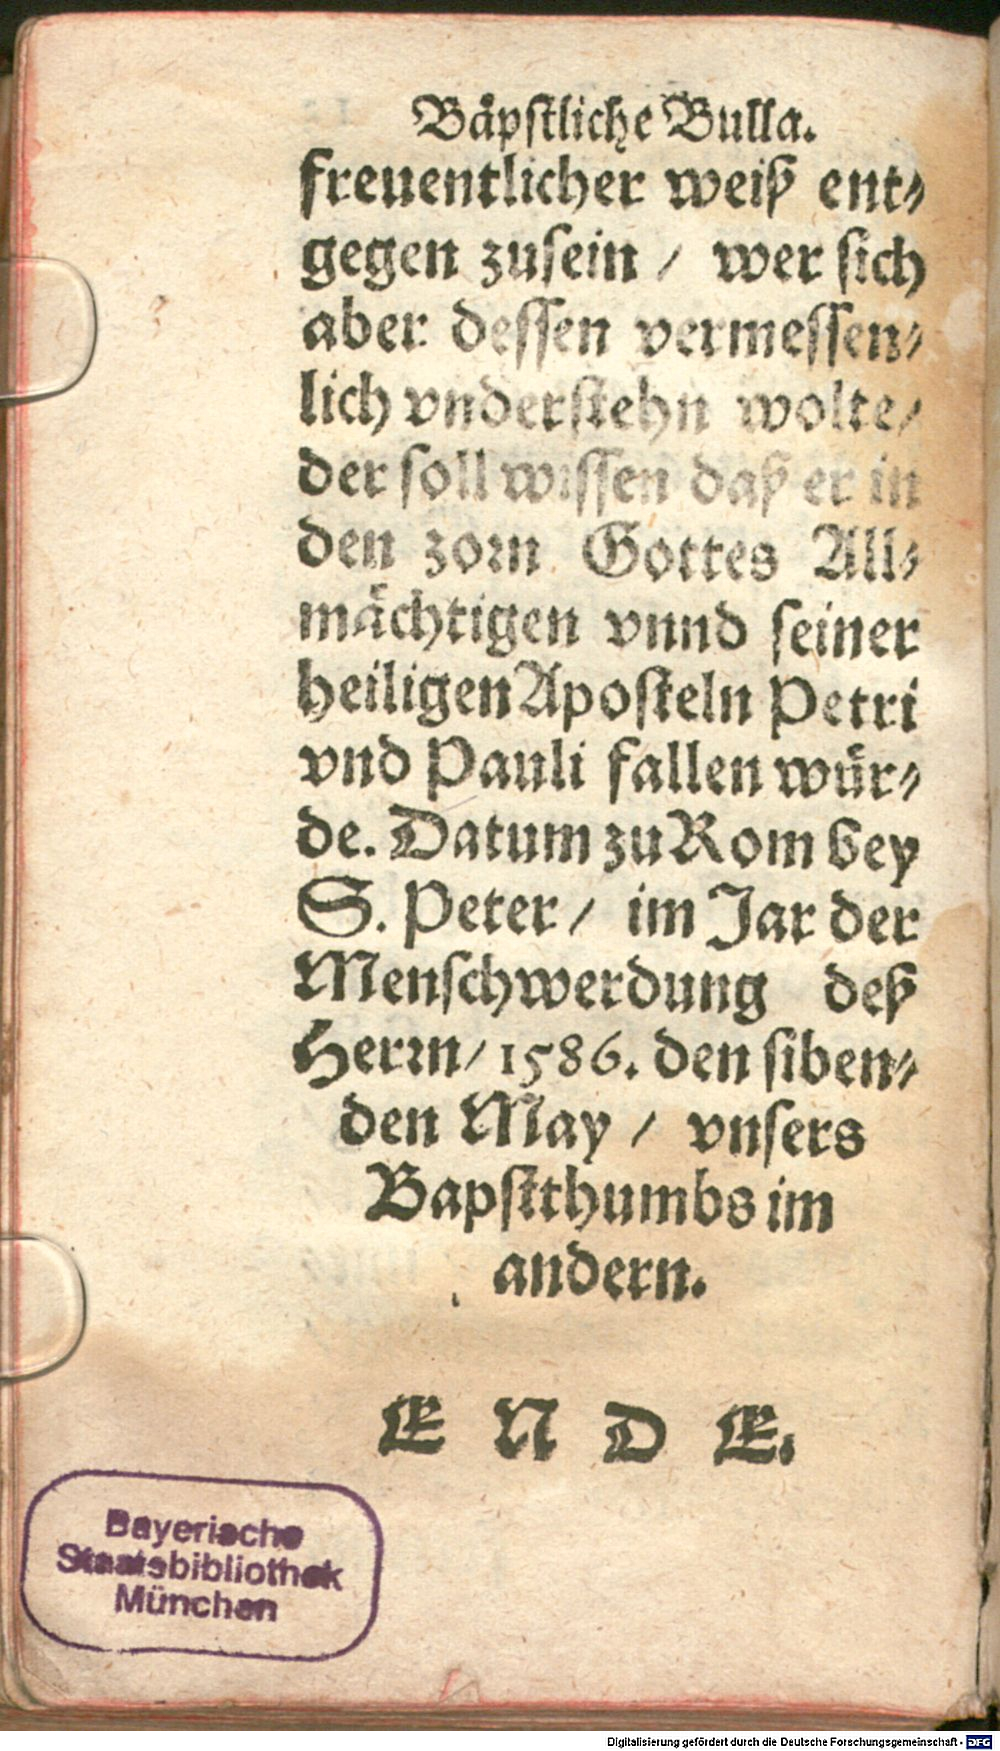 Bäpſtliche Bulla.
freuentlicher weiß ent⸗
gegen zuſein / wer ſich
aber deſſen vermeſſen⸗
lich vnderſtehn wolte/
der ſoll wiſſen daß er in
den zorn Gottes All⸗
mächtigen vnnd ſeiner
heiligen Apoſteln Petri
vnd Pauli fallen wür⸗
de. Datum zu Rom bey
S. Peter / im Jar der
Menſchwerdung deß
Herrn/ 1586. den ſiben⸗
den May / vnſers
Bapſtthumbs im
andern.
E N D E.
Bayerische
Staatsbibliothek
München
Digitalisierung gefördert durch die Deutsche Forschungsgemeinschaft - DFG